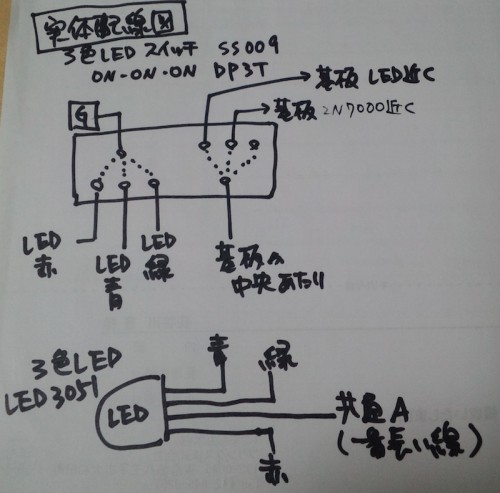 実体配線図
3色LED スイッチ SS009
ON-ON-ON DP3T
基板 LED近C
G
基板 2N7000近C
LED赤
LED青
LED緑
基板A
中央あたり
3色LED
LED3051
青
緑
LED
共通A
(一番長い線)
赤